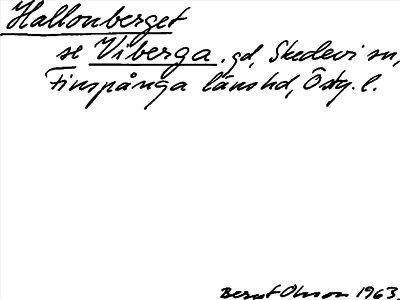 Hallonberget
se Viberga. gd, Skedevi sn,
Finspånga länshd, Östg. l.
Bernt Olsson 1963.